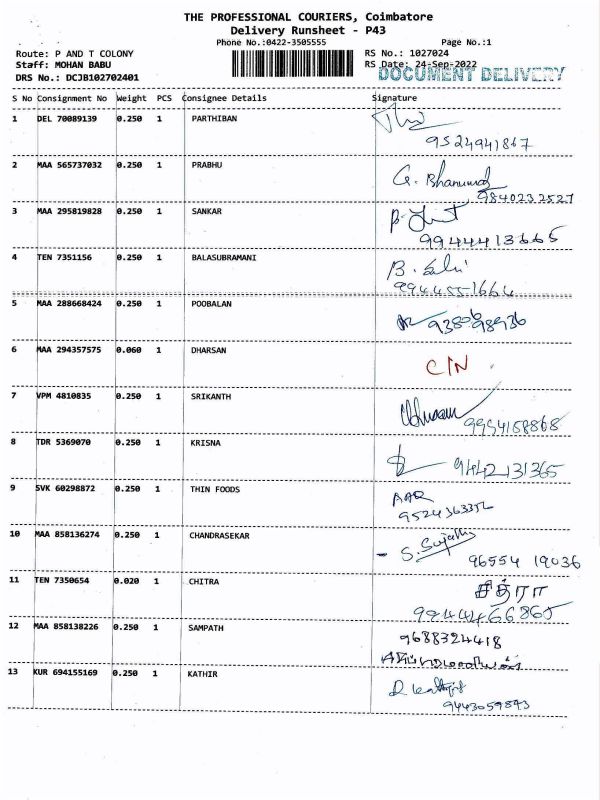 THE PROFESSIONAL COURIERS, Coimbatore
Delivery Runsheet - P43
Phone No.:0422-3505555 Page No.:1
Route: P AND T COLONY RS No.: 1027024
Staff: MOHAN BABU RS Date: 24-Sep-2022
DOCUMENT DELIVERY
DRS No.: DCJB102702401
S No Consignment No Weight PCS Consignee Details Signature
1 DEL 70089139 0.250 1 PARTHIBAN
9524941867
2 MAA 565737032 0.250 1 PRABHU
G. Bhanumathi
9840232527
3 MAA 295819828 0.250 1 SANKAR
9944413665
4 TEN 7351156 0.250 1 BALASUBRAMANI
B.
9944551664
5 MAA 288668424 0.250 1 POOBALAN
6 MAA 294357575 0.060 1 DHARSAN
C/N
7 VPM 4810835 0.250 1 SRIKANTH
9994158868
8 TDR 5369070 0.250 1 KRISNA
9442131365
9 SVK 60298872 0.250 1 THIN FOODS
10 MAA 858136274 0.250 1 CHANDRASEKAR
- S. Sujatha
96554 19036
11 TEN 7350654 0.020 1 CHITRA
சித்ரா
9944466865
12 MAA 858138226 0.250 1 SAMPATH
9688324418
13 KUR 694155169 0.250 1 KATHIR
9443059893